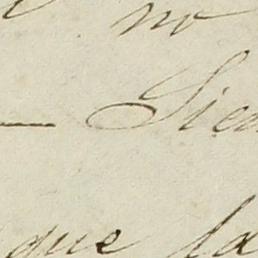 no
— Siea
que la